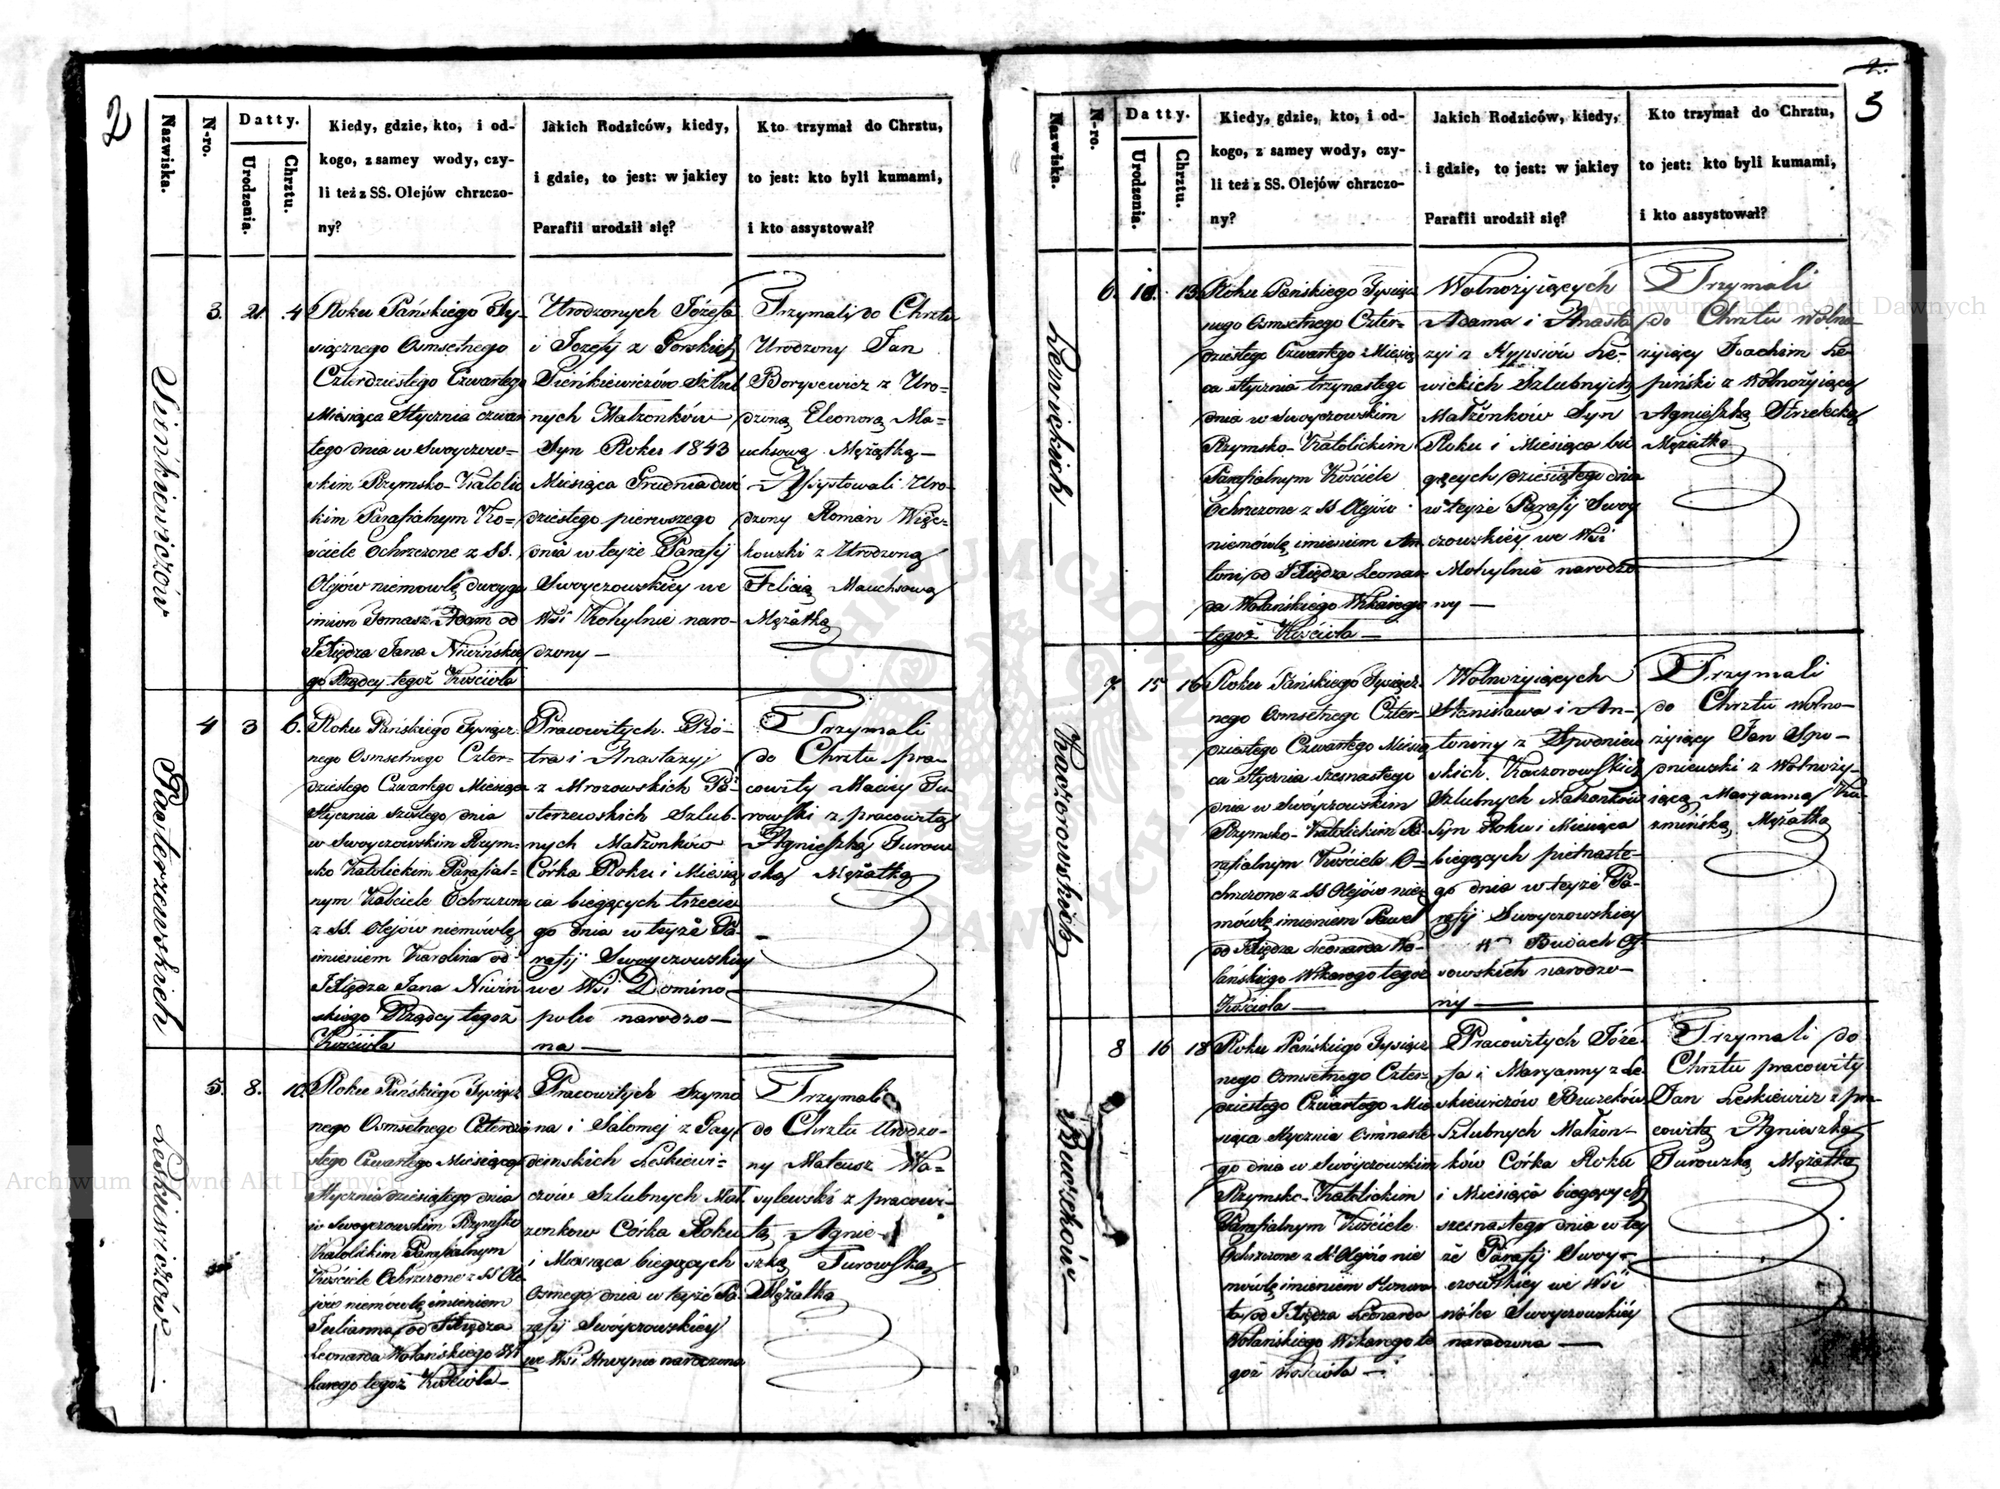 2
Nazwiska.
N-ro.
Datty.
Urodzenia.
Chrztu.
Kiedy, gdzie, kto, i od-
kogo, z samey wody, czy-
li też z SS. Olejów chrzczo-
ny?
Jakich Rodziców, kiedy,
i gdzie, to jest: w jakiey
Parafii urodził się?
Kto trzymał do Chrztu,
to jest: kto byli kumami,
i kto assystował?
Sieńkiewiczów
3. 21. 4
Roku Pańskiego Ty-
siącznego Osmsetnego
Czterdziestego Czwartego
Miesiąca Stycznia czwar
tego dnia w Swoyczow-
skim Rzymsko-Katolic
kim Parafialnym Ko-
ściele Ochrzczone z SS.
Olejów niemowlę dwoyga
imion Tomasz Adam od
Xiędza Jana Niwińskie
go Rządcy tegoż Kościoła
Urodzonych Józefa
i Józefy z Gorskich
Sieńkiewiczów Szlub
nych Małżonków
Syn Roku 1843
Miesiąca Grudnia dwó
dziestego pierwszego
dnia w teyże Parafij
Swoyczowskiey we
Wsi Kohylnie naro-
dzony —
Trzymali do Chrztu
Urodzony Jan
Borysewicz z Uro-
dzoną Eleonorą Ma-
uchsową Mężatką —
Assystowali Uro-
dzony Roman Więc-
kowski z Urodzoną
Felicią Mauchsową
Mężatką
Pasterzewskich
4 3 6.
Roku Pańskiego Tysiącz-
nego Osmsetnego Czter-
dziestego Czwartego Miesiąca
Stycznia szóstego dnia
w Swoyczowskim Rzym-
sko Katolickim Parafial-
nym Kościele Ochrzczone
z SS. Olejów niemówlę
imieniem Karolina od
Xiędza Jana Niwiń
skiego Rządcy tegoż
Kościoła
Pracowitych Pio-
tra i Anastazyi
z Mrozowskich Pa-
sterzewskich Szlub-
nych Małżonków
Córka Roku i Miesią
ca biegących trzecie
go dnia w teyże Pa-
rafij Swoyczowskiey
we Wsi Domino-
polu narodzo-
na —
Trzymali
do Chrztu pra-
cowity Maciey Tu-
rowski z pracowitą
Agnieszką Turow
ską Mężatką
Leskiewiczów
5. 8. 10.
Roku Pańskiego Tysiącz
nego Osmsetnego Czterdzie
stego Czwartego Miesiąca
Stycznia dziesiątego dnia
w Swoyczowskim Rzymsko
Katolickim Parafialnym
Kościele Ochrzczone z SS Ole
jów niemówlę imieniem
Julianna od Xiędza
Leonarda Wołańskiego Wi
karego tegoż Kościoła —
Pracowitych Szymo
na i Salomej z Gay
demskich Leśkiewi-
czów Szlubnych Mał
żonków Córka Roku
i Miesiąca biegących
Osmego dnia w teyże Pa-
rafij Swoyczowskiey
we Wsi narodzona
Trzymali
do Chrztu Urodzo-
ny Mateusz Wa-
sylewski z pracowi-
tą Agnie-
szką Turowską
Mężatką
2.
3
Nazwiska.
N-ro.
Datty.
Urodzenia.
Chrztu.
Kiedy, gdzie, kto, i od-
kogo, z samey wody, czy-
li też z SS. Olejów chrzczo-
ny?
Jakich Rodziców, kiedy,
i gdzie, to jest: w jakiey
Parafii urodził się?
Kto trzymał do Chrztu,
to jest: kto byli kumami,
i kto assystował?
Lewickich
6. 10. 13
Roku Pańskiego Tysiącz
nego Osmsetnego Czter-
dziestego Czwartego Miesią
ca Stycznia trzynastego
dnia w Swoyczowskim
Rzymsko-Katolickim
Parafialnym Kościele
Ochrzczone z SS Olejów
niemówlę imieniem An
toni od Xiędza Leonar
da Wołańskiego Wikarego
tegoż Kościoła —
Wolnożyiących
Adama i Anasta
zyi z Le-
wickich Szlubnych
Małżonków Syn
Roku i Miesiąca bie
gących dziesiątego dnia
w teyże Parafij Swoy
czowskiey we Wsi
Mohylnie narodzo
ny —
Trzymali
do Chrztu Wolno-
żyiący Joachim Le
piński z Wolnożyiącą
Agnieszką Strzelecką
Mężatką
Kaczorowskich
7. 15 16
Roku Pańskiego Tysiącz-
nego Osmsetnego Czter-
dziestego Czwartego Miesią
ca Stycznia szesnastego
dnia w Swoyczowskim
Rzymsko-Katolickim Pa-
rafialnym Kościele O-
chrzczone z SS Olejów nie
mówlę imieniem Paweł
od Xiędza Leonarda Wo-
łańskiego Wikarego tegoż
Kościoła —
Wolnożyiących
Stanisława i An-
toniny z Spodniew
skich Kaczorowskich
Szlubnych Małżonków
Syn Roku i Miesiąca
biegących pietnaste-
go dnia w teyże Pa-
rafij Swoyczowskiey
w Budach Os-
sowskich narodzo-
ny —
Trzymali
do Chrztu wolno-
żyiący Jan Spo-
dniewski z Wolnoży-
iącą Maryanną Ku-
zmińską Mężatką
Buczków
8 16 18
Roku Pańskiego Tysiącz
nego Osmsetnego Czter-
dziestego Czwartego Mie
siąca Stycznia Osmnaste
go dnia w Swoyczowskim
Rzymsko-Katolickim
Parafialnym Kościele
Ochrzczone z SS Olejów nie
mówlę imieniem Honora
ta od Xiędza Leonarda
Wołańskiego Wikarego te
goż Kościoła —
Pracowitych Józe
fa i Maryanny z Le
skiewiczów Buczków
Szlubnych Małżon-
ków Córka Roku
i Miesiąca biegących
szesnastego dnia w tey
że Parafij Swoy-
czowskiey we Wsi
Wolce Swoyczowskiéy
narodzona —
Trzymali do
Chrztu pracowity
Jan Leskiewicz z pra
cowitą Agnieszką
Turowską Mężatką
Archiwum Główne Akt Dawnych
Archiwum Główne Akt Dawnych
ARCHIWUM GŁÓWNE AKT DAWNYCH